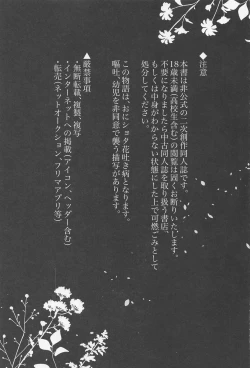 ◆注意
本書は非公式の二次創作同人誌です。
18歳未満(高校生含む)の閲覧は固くお断りいたします。
不要になりましたら中古同人誌を取り扱う書店、
もしくは中身がわからない状態にした上で可燃ごみとして
処分してください。
この物語は、おにショタ花吐き病となります。
嘔吐、幼児を非同意で襲う描写があります。
▲厳禁事項
・無断転載、複製、複写
・インターネットへの掲載(アイコン、ヘッダー含む)
・転売(ネットオークション、フリマアプリ等)